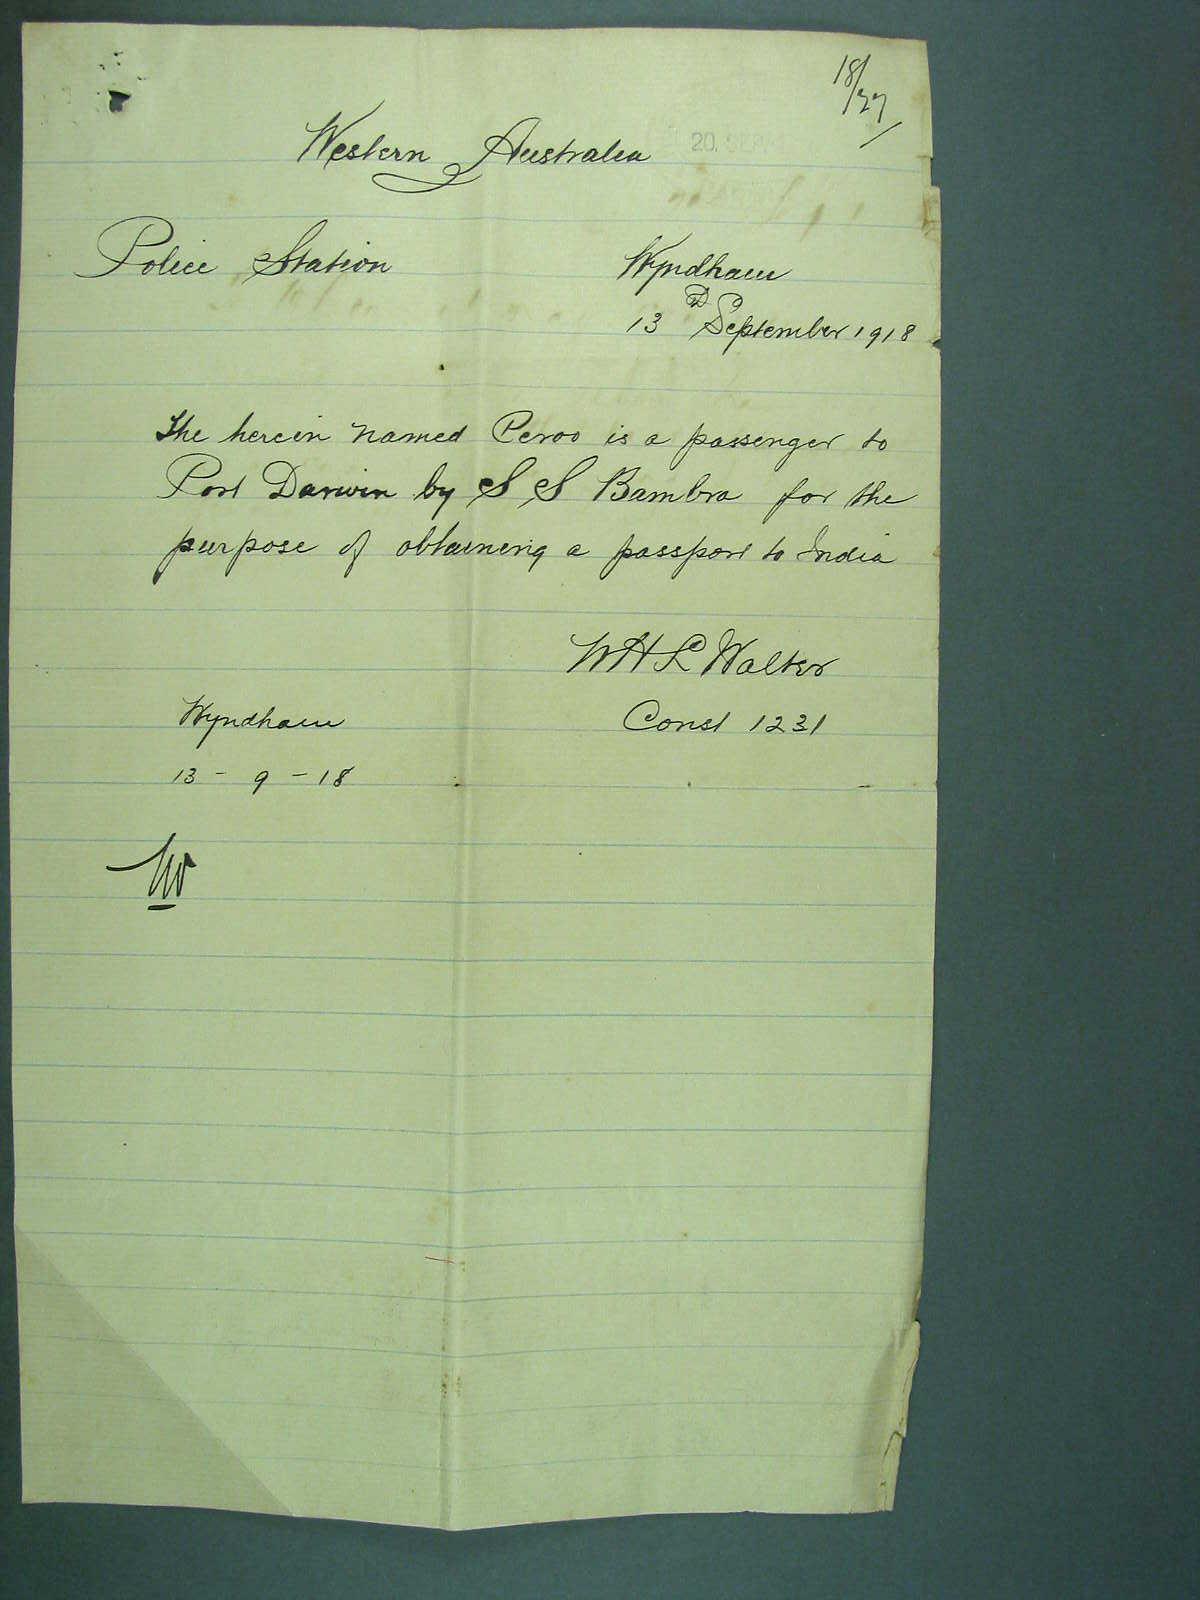 18/77
20. SEP.
Western Australia
Police Station Wyndham
13 September 1918
The herein named Peroo is a passenger to
Port Darwin by S S Bambra for the
purpose of obtaining a passport to India
W H L Walter
Wyndham Const 1231
13 - 9 - 18